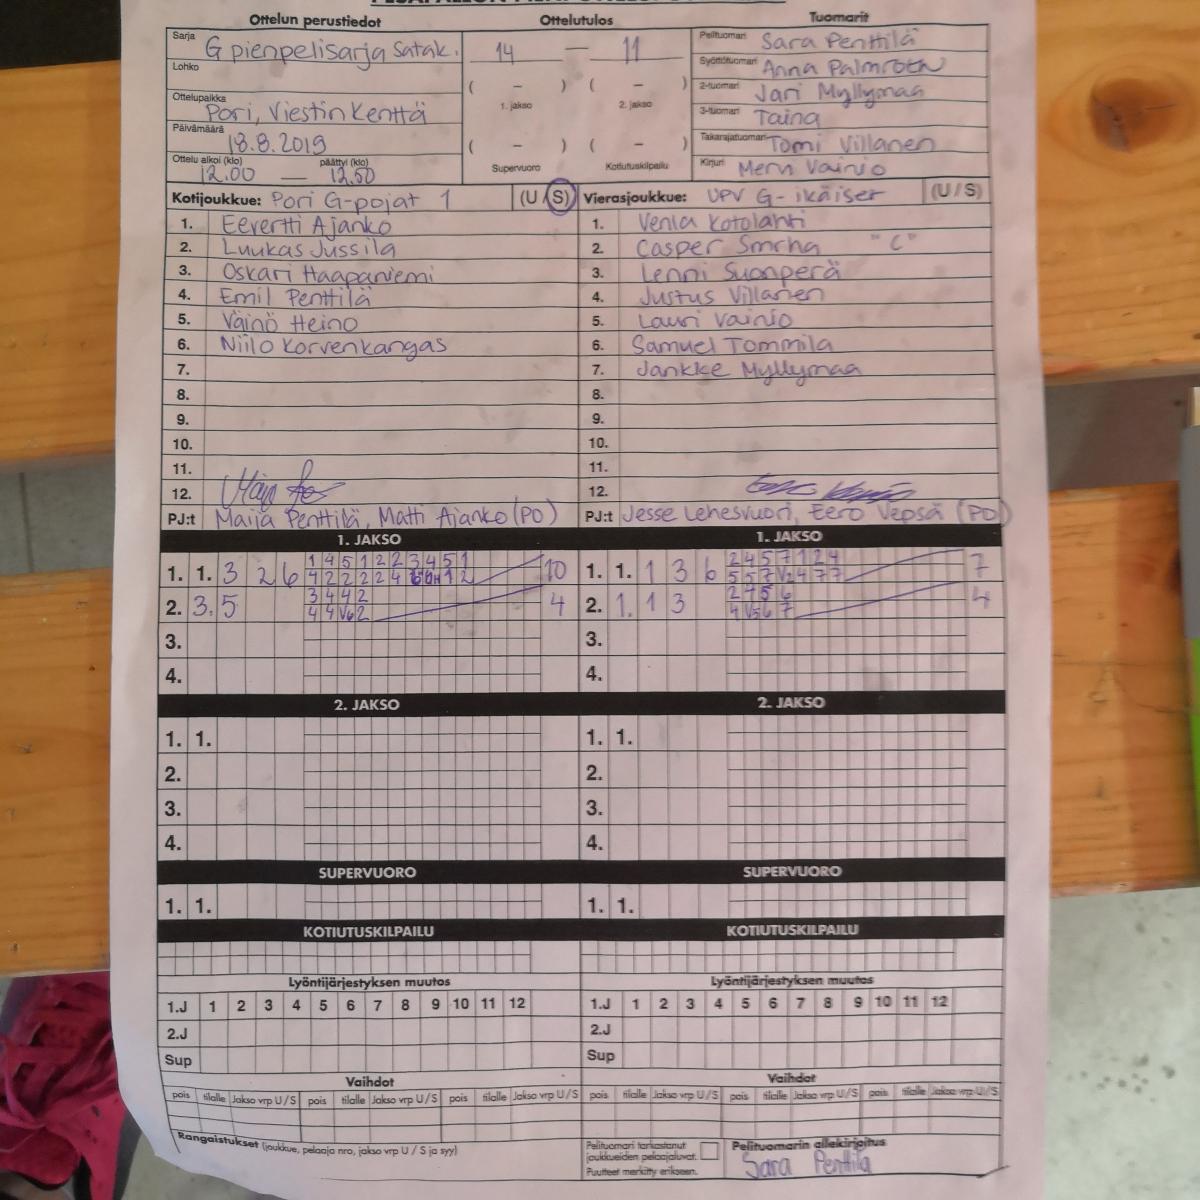 Ottelun perustiedot
Ottelutulos
Tuomarit
Sarja G pienpelisarja Satak.
14 — 11
Pelituomari Sara Penttilä
Lohko
Syöttötuomari Anna Palmroth
( – ) ( – )
2-tuomari Jari Myllymaa
Ottelupaikka Pori, Viestin Kenttä
1. jakso 2. jakso
3-tuomari Taina
Päivämäärä 18.8.2019
( – ) ( – )
Takarajatuomari Tomi Villanen
Ottelu alkoi (klo) päättyi (klo)
12.00 — 12.50
Supervuoro Kotiutuskilpailu
Kirjuri Mervi Vainio
Kotijoukkue: Pori G-pojat 1 (U/S)
Vierasjoukkue: UPV G-ikäiset (U/S)
1. Eevertti Ajanko
1. Venla Kotolahti
2. Luukas Jussila
2. Casper Smrha "C"
3. Oskari Haapaniemi
3. Lenni Suonperä
4. Emil Penttilä
4. Justus Villanen
5. Väinö Heino
5. Lauri Vainio
6. Niilo Korvenkangas
6. Samuel Tommila
7.
7. Jankke Myllymaa
8.
8.
9.
9.
10.
10.
11.
11.
12.
12.
PJ:t Maija Penttilä, Matti Ajanko (PO)
PJ:t Jesse Lehesvuori, Eero Vepsä (PO)
1. JAKSO
1. JAKSO
1. 1. 3 2 6
1 4 5 1 2 2 3 4 5 1
10
1. 1. 1 3 6
2 4 5 7 1 2 4
5 5 7 V2 4 7 7
7
2. 3. 5
3 4 4 2
4 4 V6 2
4
2. 1. 1 3
2 4 5 6
4 V5 6 7
4
3.
3.
4.
4.
2. JAKSO
2. JAKSO
1. 1.
1. 1.
2.
2.
3.
3.
4.
4.
SUPERVUORO
SUPERVUORO
1. 1.
1. 1.
KOTIUTUSKILPAILU
KOTIUTUSKILPAILU
Lyöntijärjestyksen muutos
Lyöntijärjestyksen muutos
1.J 1 2 3 4 5 6 7 8 9 10 11 12
1.J 1 2 3 4 5 6 7 8 9 10 11 12
2.J
2.J
Sup
Sup
Vaihdot
Vaihdot
pois tilalle Jakso vrp U/S pois tilalle Jakso vrp U/S pois tilalle Jakso vrp U/S
pois tilalle Jakso vrp U/S pois tilalle Jakso vrp U/S pois tilalle Jakso vrp U/S
Rangaistukset (joukkue, pelaaja nro, jakso vrp U / S ja syy)
Pelituomari tarkastanut
joukkueiden pelaajaluvat.
Puutteet merkitty erikseen.
Pelituomarin allekirjoitus
Sara Penttilä